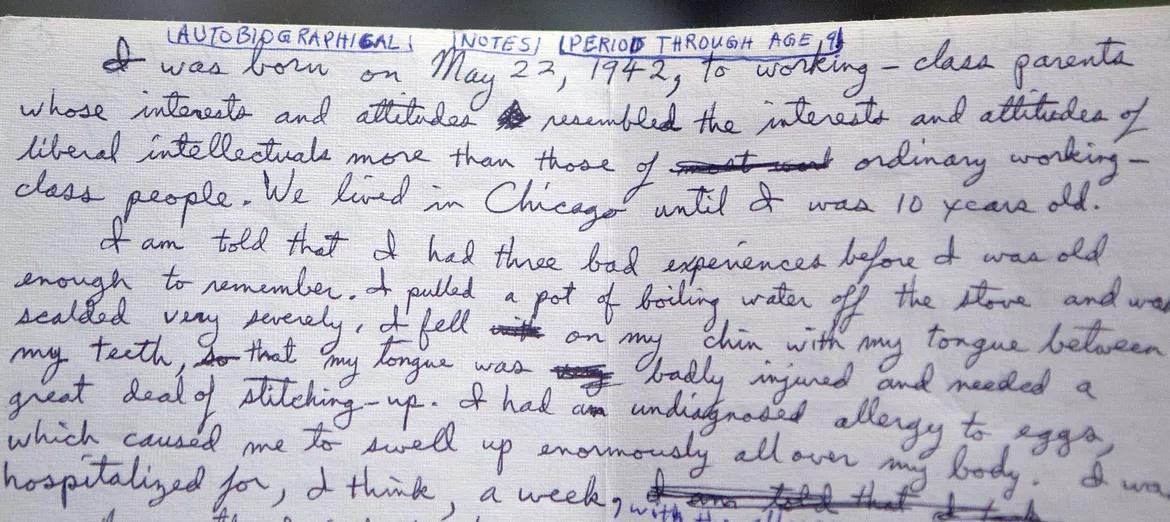 AUTOBIOGRAPHICAL NOTES PERIOD THROUGH AGE 9
I was born on May 22, 1942, to working-class parents
whose interests and attitudes resembled the interests and attitudes of
liberal intellectuals more than those of ordinary working-
class people. We lived in Chicago until I was 10 years old.
I am told that I had three bad experiences before I was old
enough to remember. I pulled a pot of boiling water off the stove and was
scalded very severely, I fell on my chin with my tongue between
my teeth, so that my tongue was badly injured and needed a
great deal of stitching-up. I had an undiagnosed allergy to eggs,
which caused me to swell up enormously all over my body. I wa
hospitalized for, I think, a week, I am told that I